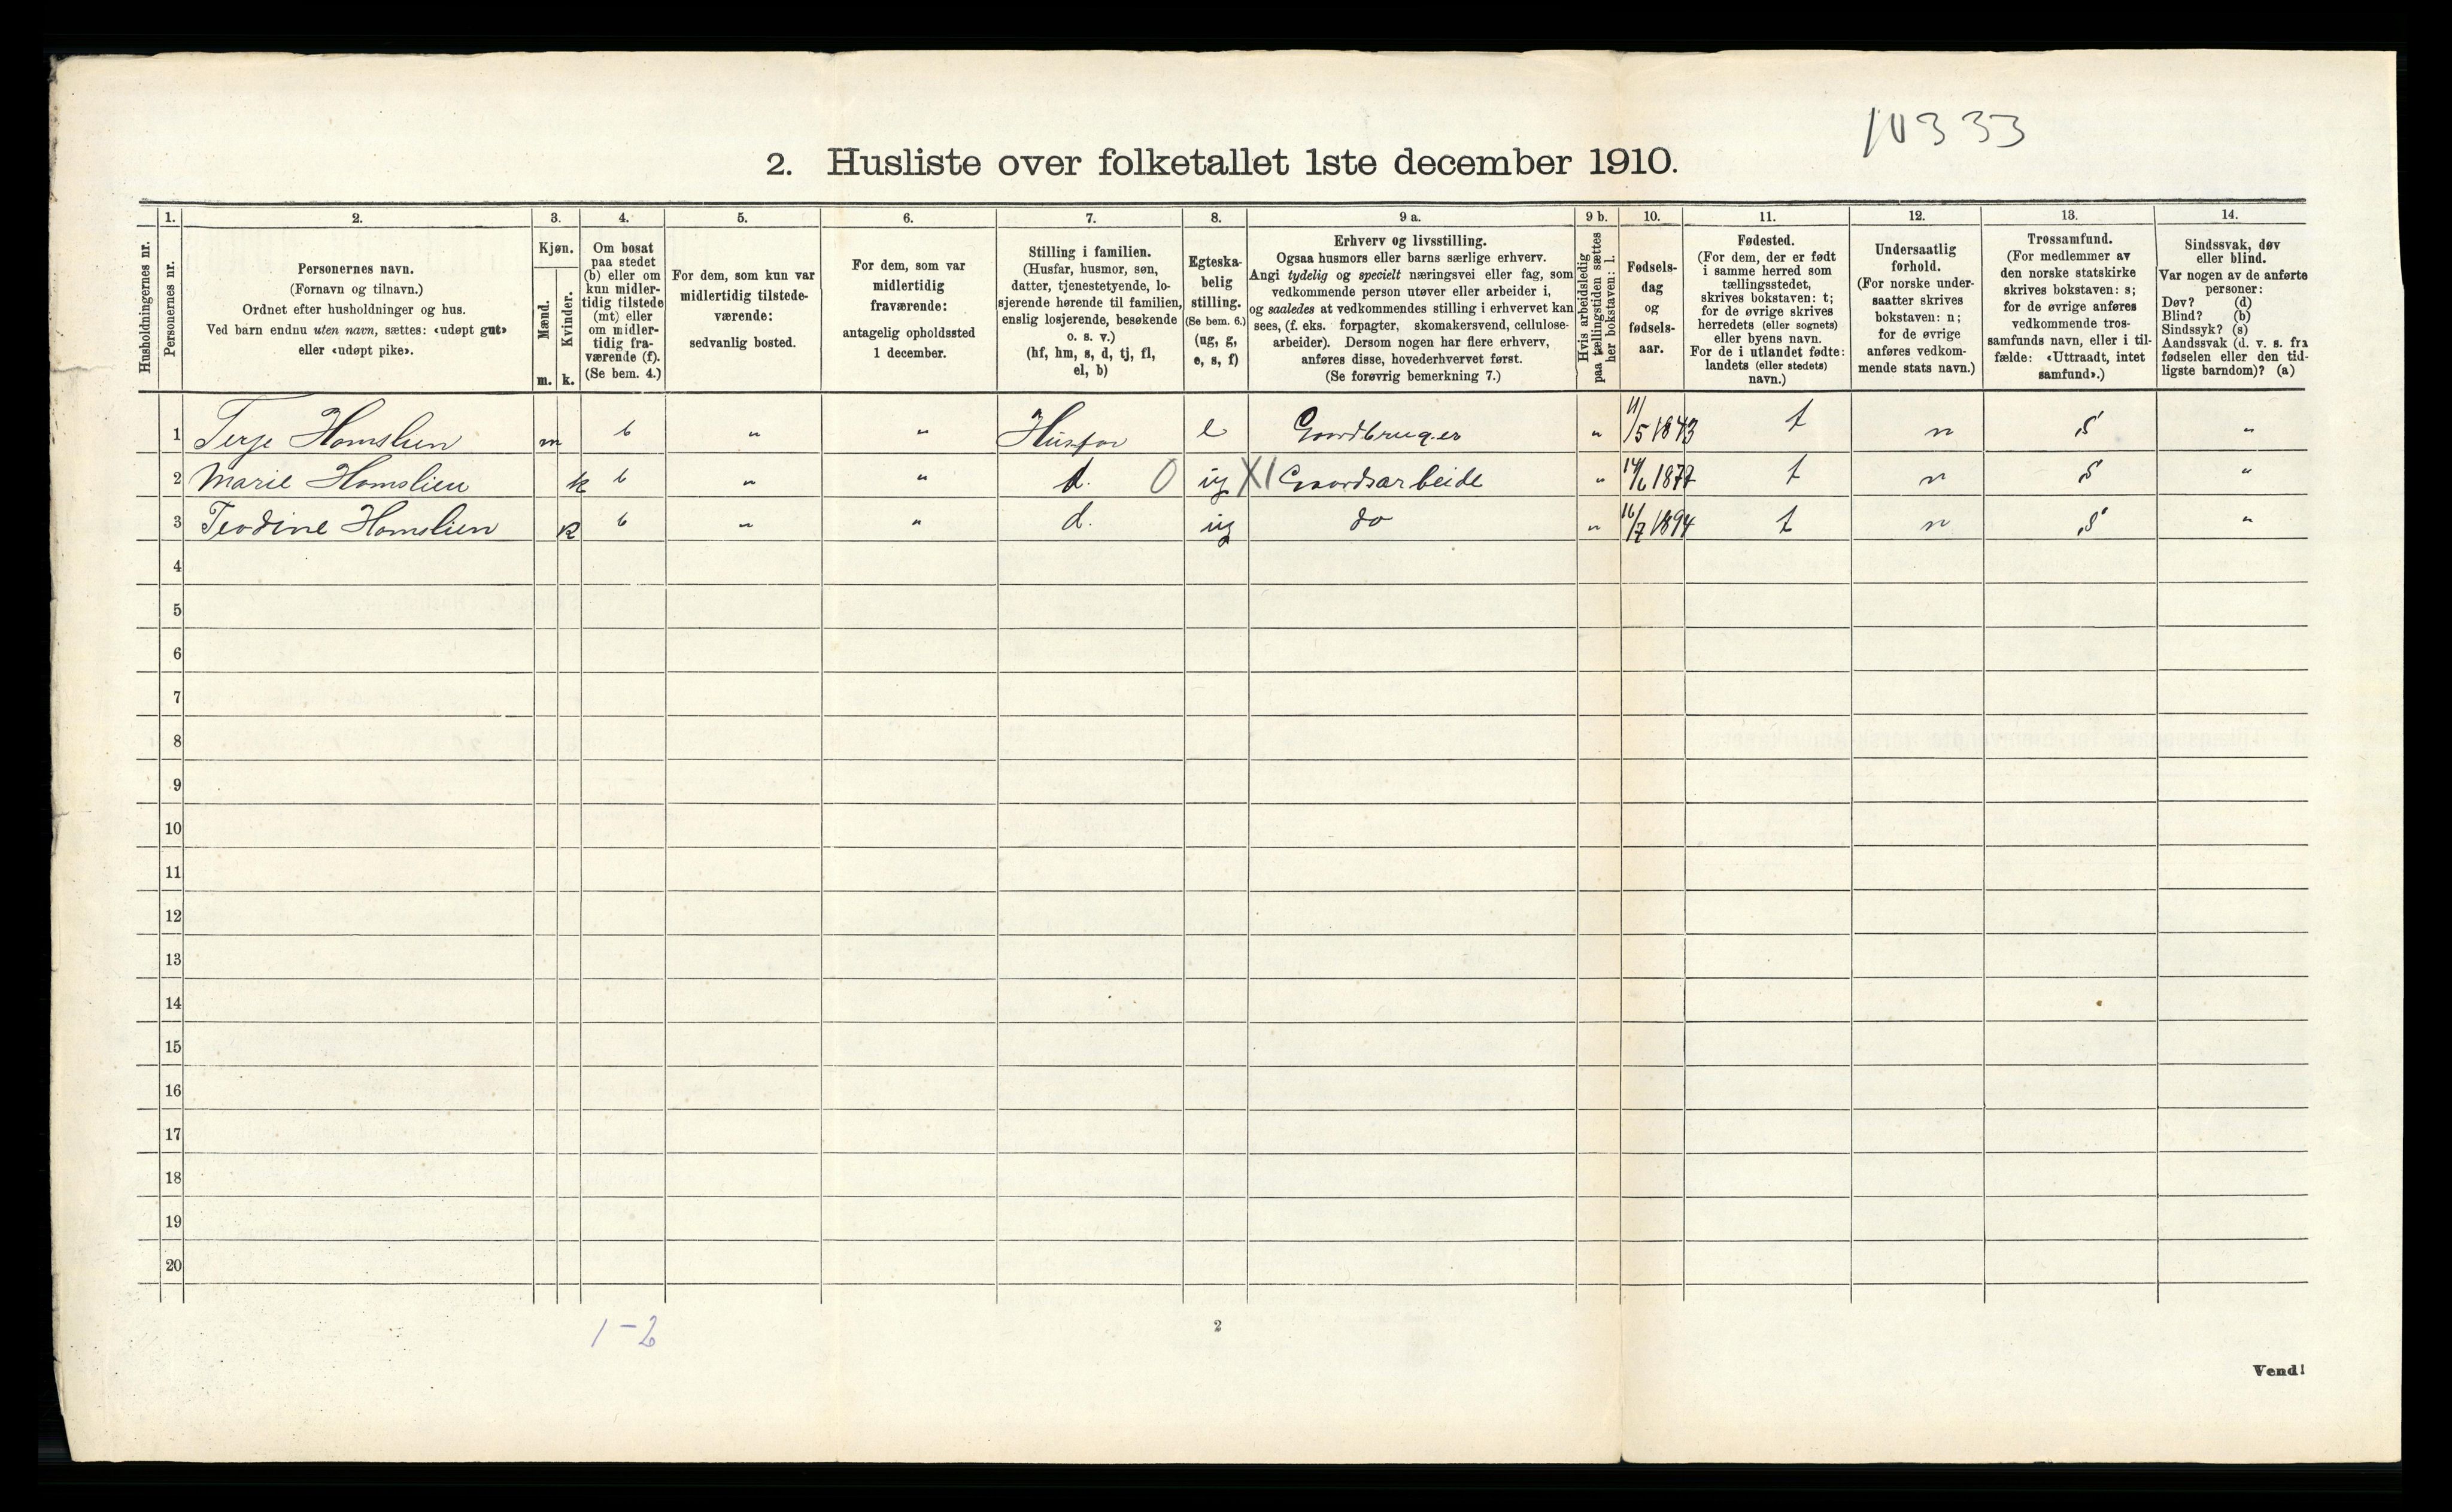 10333
2. Husliste over folketallet 1ste december 1910.
Husholdningernes nr.
1.
Personernes nr.
2.
Personernes navn.
(Fornavn og tilnavn.)
Ordnet efter husholdninger og hus.
Ved barn endnu uten navn, sættes: «udøpt gut»
eller «udøpt pike».
3.
Kjøn.
Mænd.
Kvinder.
m. k.
4.
Om bosat
paa stedet
(b) eller om
kun midler-
tidig tilstede
(mt) eller
om midler-
tidig fra-
værende (f).
(Se bem. 4.)
5.
For dem, som kun var
midlertidig tilstede-
værende:
sedvanlig bosted.
6.
For dem, som var
midlertidig
fraværende:
antagelig opholdssted
1 december.
7.
Stilling i familien.
(Husfar, husmor, søn,
datter, tjenestetyende, lo-
sjerende hørende til familien,
enslig losjerende, besøkende
o. s. v.)
(hf, hm, s, d, tj, fl,
el, b)
8.
Egteska-
belig
stilling.
(Se bem. 6.)
(ug, g,
e, s, f)
9 a.
Erhverv og livsstilling.
Ogsaa husmors eller barns særlige erhverv.
Angi tydelig og specielt næringsvei eller fag, som
vedkommende person utøver eller arbeider i,
og saaledes at vedkommendes stilling i erhvervet kan
sees, (f. eks. forpagter, skomakersvend, cellulose-
arbeider). Dersom nogen har flere erhverv,
anføres disse, hovederhvervet først.
(Se forøvrig bemerkning 7.)
9 b.
Hvis arbeidsledig
paa tællingstiden sættes
her bokstaven: l.
10.
Fødsels-
dag
og
fødsels-
aar.
11.
Fødested.
(For dem, der er født
i samme herred som
tællingsstedet,
skrives bokstaven: t;
for de øvrige skrives
herredets (eller sognets)
eller byens navn.
For de i utlandet fødte:
landets (eller stedets)
navn.)
12.
Undersaatlig
forhold.
(For norske under-
saatter skrives
bokstaven: n;
for de øvrige
anføres vedkom-
mende stats navn.)
13.
Trossamfund.
(For medlemmer av
den norske statskirke
skrives bokstaven: s;
for de øvrige anføres
vedkommende tros-
samfunds navn, eller i til-
fælde: «Uttraadt, intet
samfund».)
14.
Sindssvak, døv
eller blind.
Var nogen av de anførte
personer:
Døv? (d)
Blind? (b)
Sindssyk? (s)
Aandssvak (d. v. s. fra
fødselen eller den tid-
ligste barndom)? (a)
1 Terje Homslien m b " " Husfar e Gaardbruger " 11/5 1843 t n S "
2 Marie Homslien k b " " d. 0 ug X1 Gaardsarbeide " 14/6 1877 t n S "
3 Teodine Homslien k b " " d. ug do " 16/7 1894 t n S "
4
5
6
7
8
9
10
11
12
13
14
15
16
17
18
19
20
1-2
2
Vend!